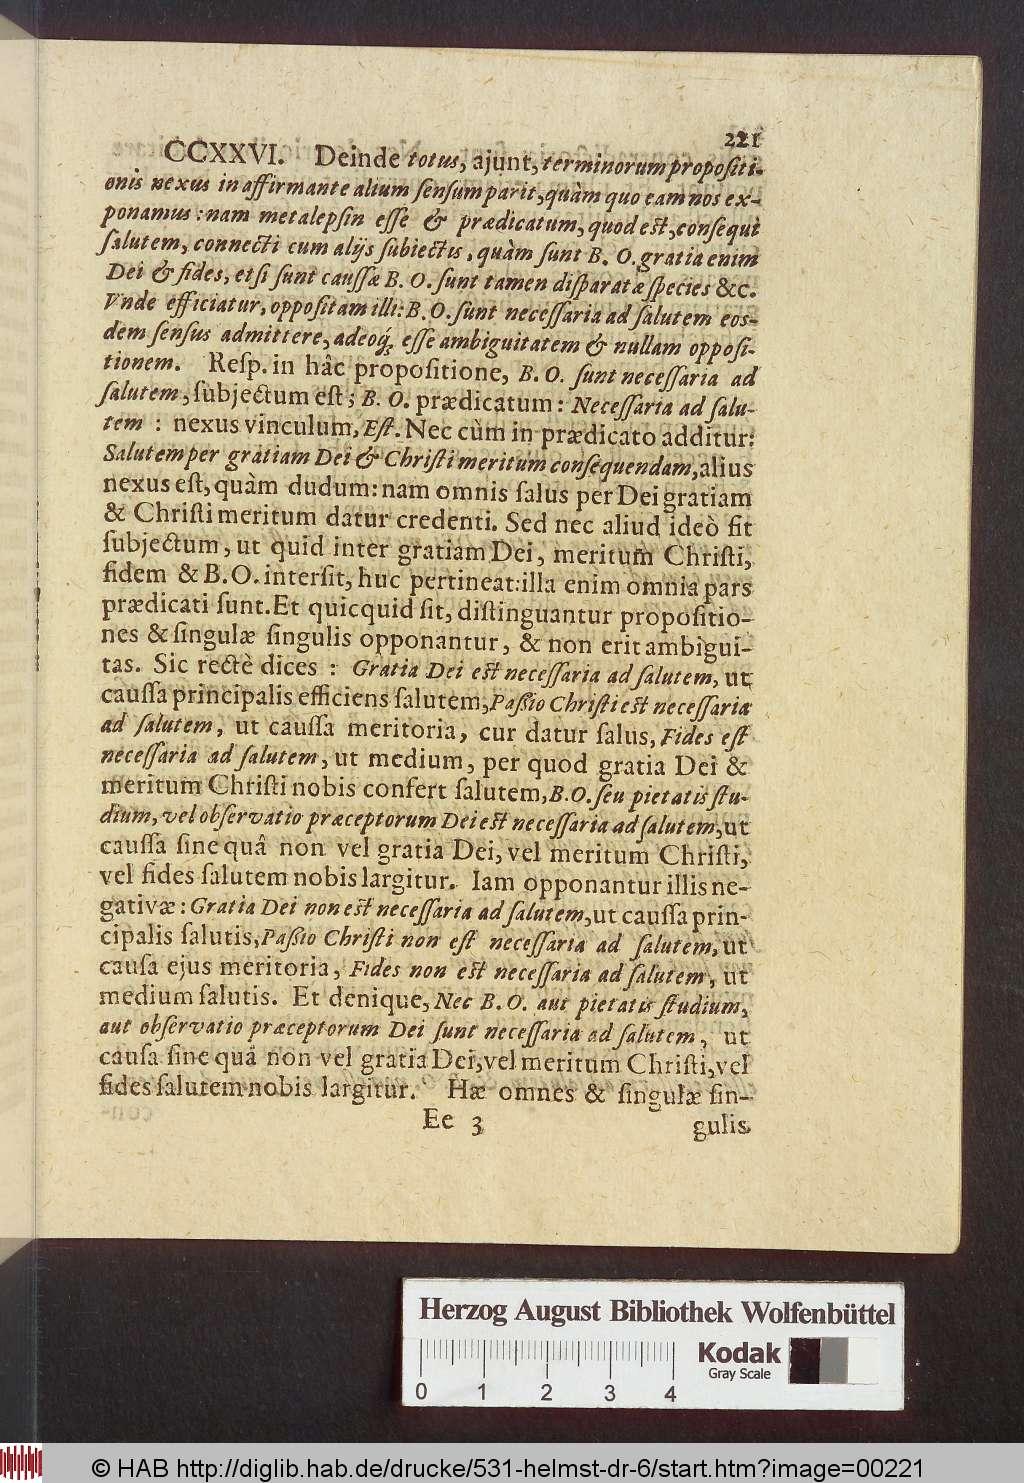 221
CCXXVI. Deinde totus, ajunt, terminorum propositi-
onis nexus in affirmante alium sensum parit, quàm quo eam nos ex-
ponamus: nam metalepsin esse & prædicatum, quod est, consequi
salutem, connecti cum alijs subiectis, quàm sunt B. O. gratia enim
Dei & fides, etsi sunt caussæ B. O. sunt tamen disparatæ species &c.
Vnde efficiatur, oppositam illi: B. O. sunt necessaria ad salutem eos-
dem sensus admittere, adeoq́; esse ambiguitatem & nullam opposi-
tionem. Resp. in hâc propositione, B. O. sunt necessaria ad
salutem, subjectum est; B. O. prædicatum: Necessaria ad salu-
tem: nexus vinculum, Est. Nec cùm in prædicato additur:
Salutem per gratiam Dei & Christi meritum consequendam, alius
nexus est, quàm dudum: nam omnis salus per Dei gratiam
& Christi meritum datur credenti. Sed nec aliud ideò fit
subjectum, ut quid inter gratiam Dei, meritum Christi,
fidem & B. O. intersit, huc pertineat: illa enim omnia pars
prædicati sunt. Et quicquid sit, distinguantur propositio-
nes & singulæ singulis opponantur, & non erit ambigui-
tas. Sic rectè dices: Gratia Dei est necessaria ad salutem, ut
caussa principalis efficiens salutem, Passio Christi est necessaria
ad salutem, ut caussa meritoria, cur datur salus, Fides est
necessaria ad salutem, ut medium, per quod gratia Dei &
meritum Christi nobis confert salutem, B. O. seu pietatis stu-
dium, vel observatio præceptorum Dei est necessaria ad salutem, ut
caussa sine quâ non vel gratia Dei, vel meritum Christi,
vel fides salutem nobis largitur. Iam opponantur illis ne-
gativæ: Gratia Dei non est necessaria ad salutem, ut caussa prin-
cipalis salutis, Passio Christi non est necessaria ad salutem, ut
causa ejus meritoria, Fides non est necessaria ad salutem, ut
medium salutis. Et denique, Nec B. O. aut pietatis studium,
aut observatio præceptorum Dei sunt necessaria ad salutem, ut
causa sine quâ non vel gratia Dei, vel meritum Christi, vel
fides salutem nobis largitur. Hæ omnes & singulæ sin-
Ee 3 gulis
Herzog August Bibliothek Wolfenbüttel
0 1 2 3 4
Kodak
Gray Scale
© HAB http://diglib.hab.de/drucke/531-helmst-dr-6/start.htm?image=00221